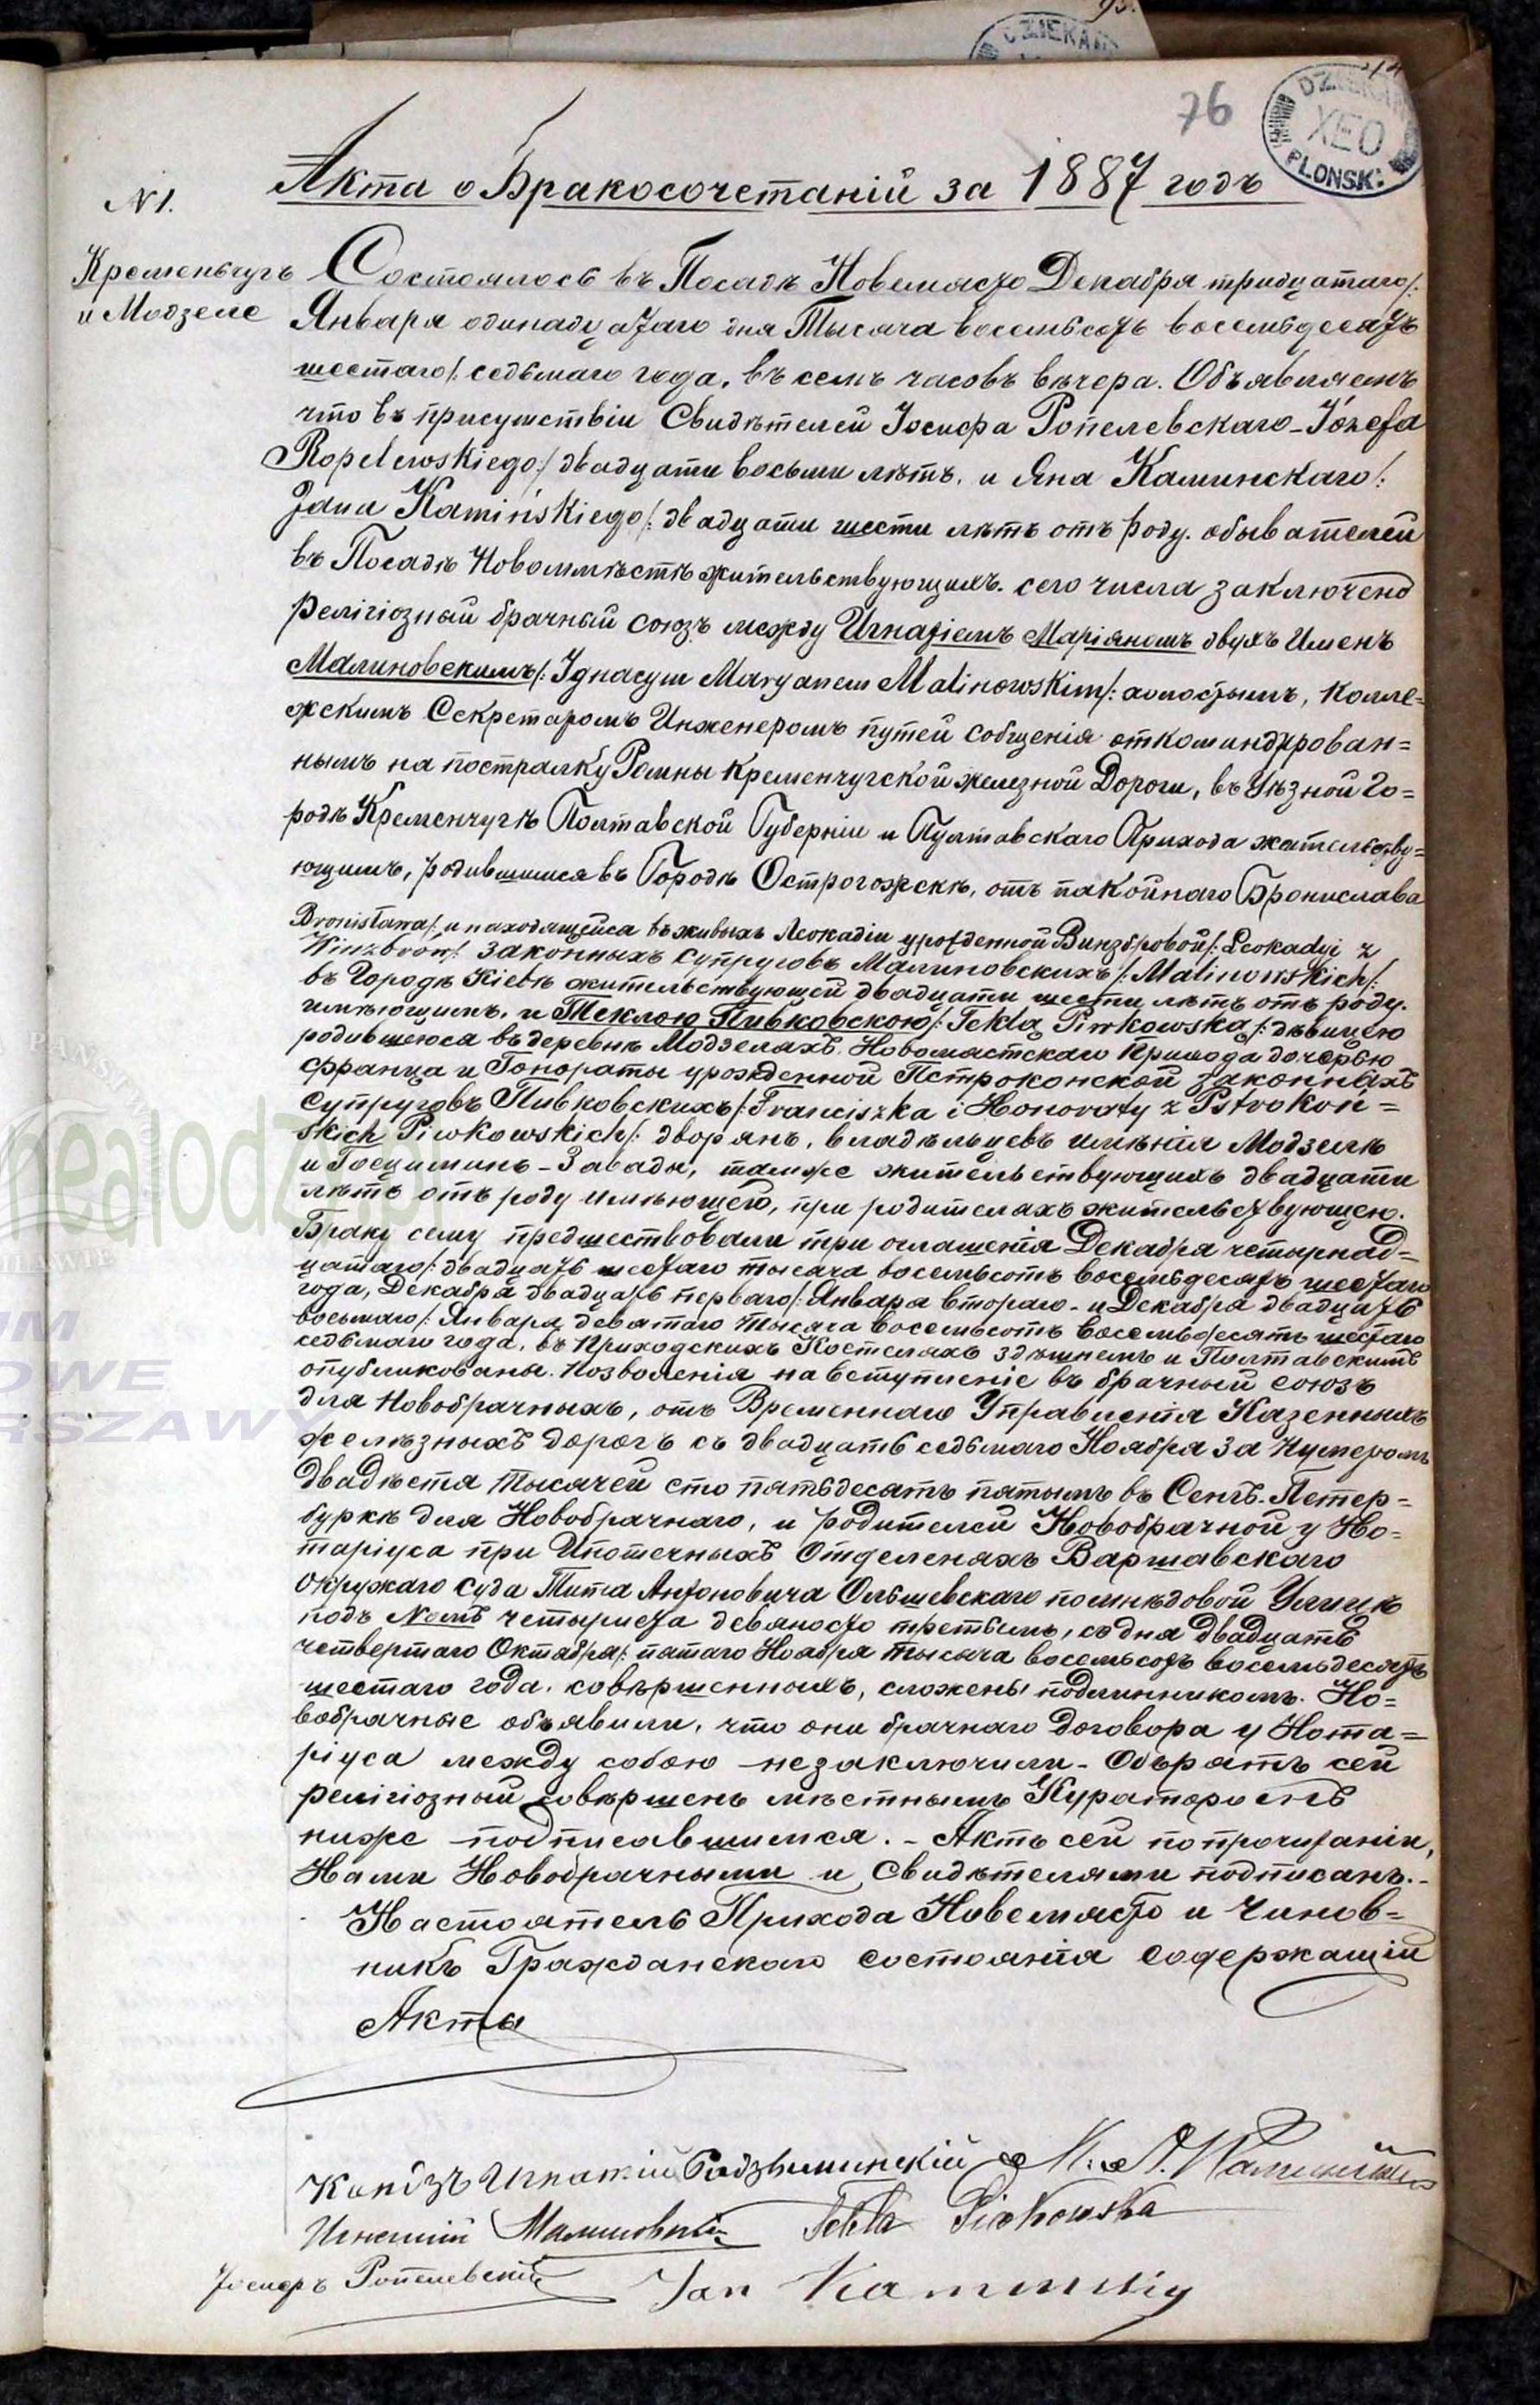 76
DZIEKAN
PŁONSK:
Акта о Бракосочетаній за 1887 годъ
N 1.
Кременьчугъ
и Модзеле
Состоялось въ Посадѣ Новемясто Декабря тридцатаго/:
Января одинадцатаго дня Тысяча восемьсотъ восемьдесятъ
шестаго/: седьмаго года, въ семь часовъ вѣчера. Объявляемъ
что въ присушствіи Свидѣтелей Іосифа Ропелевскаго - Józefa
Ropelewskiego:/ двадцати восьми лѣтъ, и Яна Каминскаго/:
Jana Kamińskiego/: двадцати шести лѣтъ отъ роду. обывателей
въ Посадѣ Новоммѣстѣ жительствующихъ. сего числа заключено
религіозный брачный союзъ между Игнаціемъ Маріяномъ двухъ Именъ
Малиновскимъ/: Ignacym Maryanem Malinowskim/: холостымъ, Колле=
жскимъ Секретаромъ Инженеромъ путей собщенія откомандирован=
нымъ на постралку Ромны Кременчугской железной Дороги, въ Уѣзной Го=
родѣ Кременчугѣ Полтавской Губерніи и Пултавскаго Прихода жательству=
ющимъ, родившимся въ Городѣ Острогожскѣ, отъ пакойнаго Бронислава
Bronisława/: и находящейса въ живыхъ Леокадіи урожденной Винзбровой/: Leokadyi z
законныхъ супруговъ Малиновскихъ/: Malinowskich/:
въ Городѣ Кіевѣ жительствующей двадцати шести лѣтъ отъ роду.
имѣющимъ, и Теклою Пивковскою/: Teklą Piwkowską/: дѣвицею
родившеюса въ деревнѣ Модзеляхъ Новомястскаго Прихода дочерью
Франца и Гонораты урожденной Пстроконской законныхъ
супруговъ Пивковскихъ/: Franciszka i Honoraty z Pstrokoń=
skich Piwkowskich/: дворянъ, владѣльцевъ имѣнія Модзеле
и Госциминъ-Завады, тамже жительствующихъ двадцати
лѣтъ отъ роду имѣющей, при родителахъ жительствующею.
Браку сему предшествовали три оглашенія Декабря четырнад=
цатаго/: двадцать шестаго тысяча восемьсотъ восемьдесятъ шестаго
года, Декабря двадцать перваго/: Января втораго - и Декабря двадцать
восьмаго/: Января девятаго тысяча восемьсотъ восемьдесятъ шестаго
седьмаго года, въ Приходскихъ Костелахъ здѣшнемъ и Полтавскимъ
опубликованы. Позволенія на вступленіе въ брачный союзъ
для Новобрачныхъ, отъ Временнаго Управленія Казенныхъ
желѣзныхъ дорогъ съ двадцать седьмаго Ноября за Нумеромъ
двадѣста тысячей сто пятьдесятъ пятымъ въ Сенгъ. Петер=
буркѣ для Новобрачнаго, и родителей Новобрачной у Но=
таріуса при Ипотечныхъ Отделеняхъ Варшавскаго
Окружаго Суда Тита Антоновича Ольшевскаго по мнѣдовой Улицѣ
подъ Nомъ четыриста девяносто третьимъ, со дня двадцать
четвертаго Октября/: пятаго Ноября тысяча восемьсотъ восемьдесятъ
шестаго года. ковѣршенныхъ, сложены подлинникомъ. Но=
вобрачные объявили, что они брачнаго договора у Нота=
ріуса между собою незаключили - Обѣратъ сей
религіозный совѣршенъ мѣстнымъ Кураторомъ
ниже подписавшимся. - Актъ сей по прочитаніи,
Нами Новобрачными и Свидѣтелями подписанъ. -
Настоятель Прихода Новемясто и Чинов=
никъ Гражданскаго состоянія Содержащій
Акты
Ксіндзъ Игнатій Радзиминскій
Игнатій Малиновскій Tekla Piwkowska
Іосифъ Ропелевскій Jan Kaminskiy